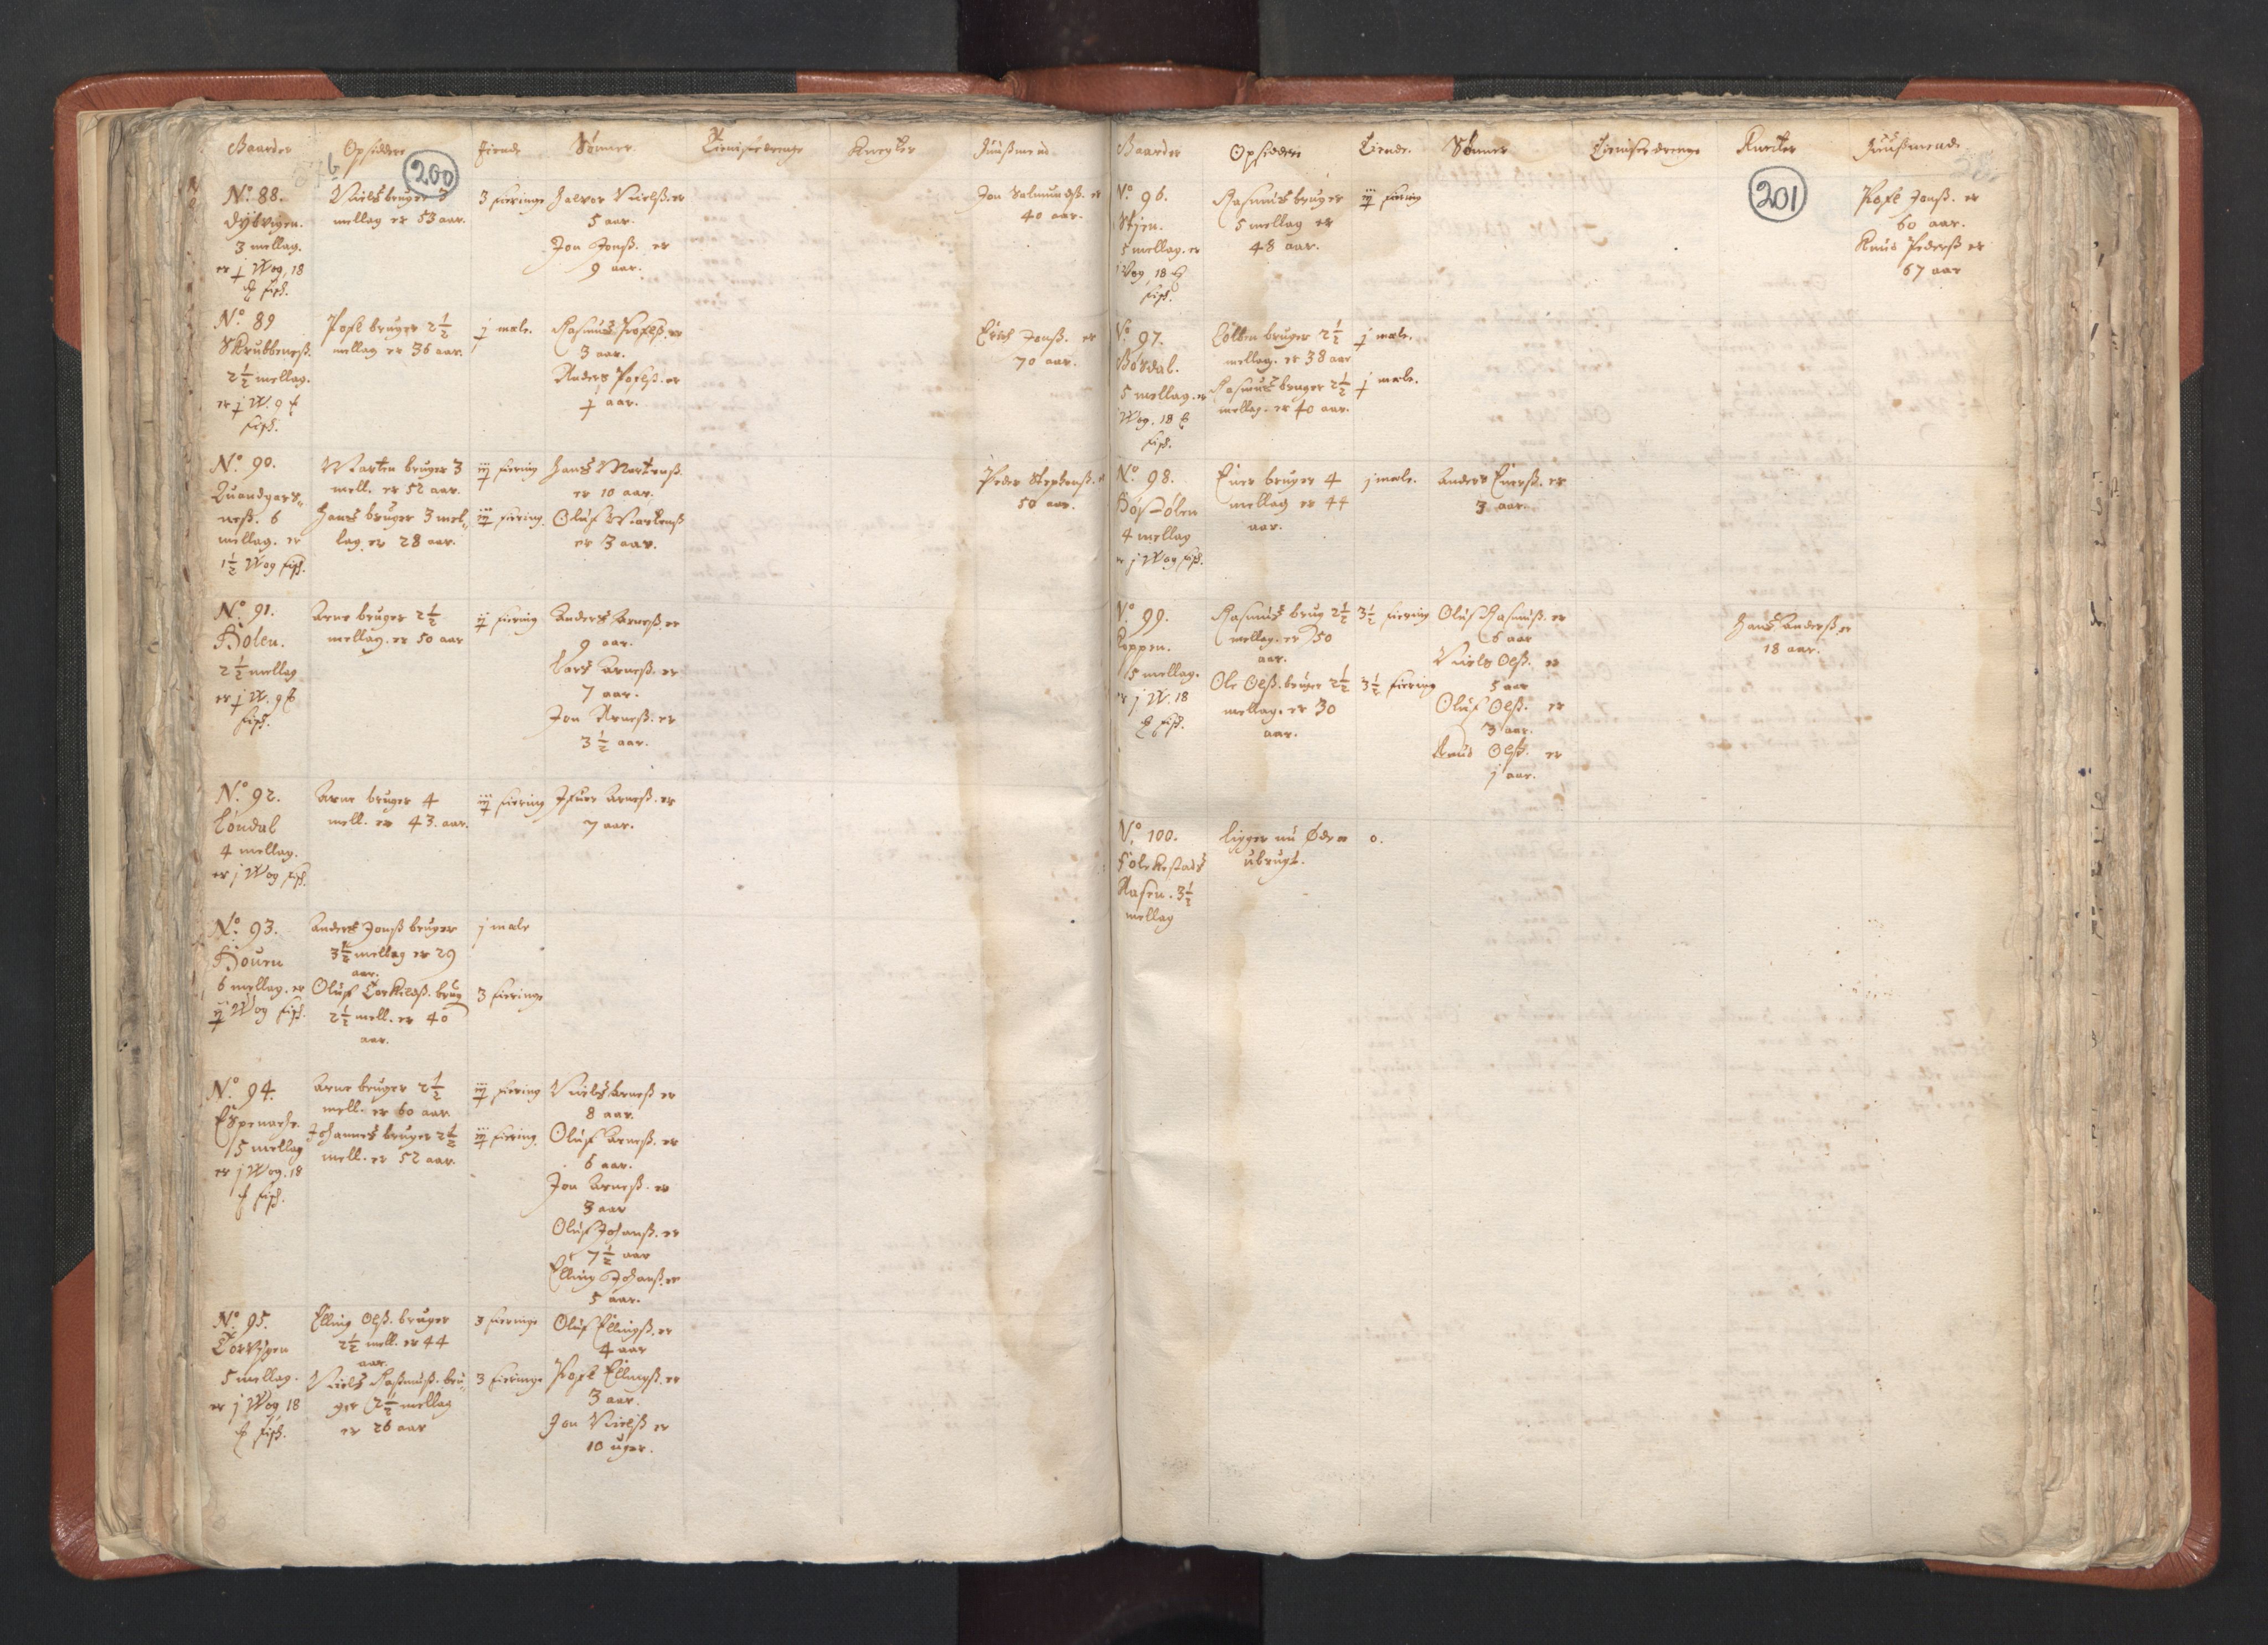 Gaarder Opsiddere Tiende Sønner Tienistedrenge Knegter Huußmend
200
No. 88.
Dybvigen.
3 mellag.
er j Wog, 18
fisk.
Niels bruger 3
mellag er 53 aar.
3 fieringe
Halvor Nielß. er
5 aar.
Jon Jonß. er
9 aar.
Jon Salmundß. er
40 aar.
No. 89
Skrubbeneß.
2½ mellag.
er j W. 9
fisk.
Pofl bruger 2½
mellag er 36 aar.
j mæle.
Rasmus Poflß. er
3 aar.
Anders Poflß. er
j aar.
Erich Jonß. er
70 aar.
No. 90.
Quandgars-
neß. 6
mellag. er
1½ Wog fisk.
Marten bruger 3
mell. er 52 aar.
Hans bruger 3 mel-
lag er 28 aar.
iij fiering
iij fiering.
Hans Martenß.
er 10 aar.
Oluf Martenß
er 3 aar.
Peder Stephenß. er
50 aar.
No. 91.
Holen.
2½ mellag
er j W. 9
fisk.
Arne bruger 2½
mellag. er 50 aar
ij fiering
Anders Arneß. er
9 aar.
Lars Arneß. er
7 aar.
Jon Arneß. er
3½ aar.
No. 92.
Løndal
4 mellag.
er j Wog fisk.
Arne bruger 4
mell. er 43. aar.
iij fiering
Ifuer Arneß. er
7 aar.
No. 93.
Houen
6 mellag. er
ij Wog fisk.
Anders Jonß bruger
3½ mellag er 29
aar.
Oluf Torkildß. brug
2½ mell. er 40
aar.
j mæle
3 fieringe
No. 94.
Espenache.
5 mellag
er j Wog. 18
fisk.
Arne bruger 2½
mell. er 60 aar
Johannes bruger 2½
mell. er 52 aar.
iij fiering
iij fiering.
Niels Arneß er
8 aar.
Oluf Arneß. er
6 aar.
Jon Arneß. er
3 aar
Oluf Johanß. er
7½ aar
Elling Johanß. er
5 aar.
No. 95.
Torvigen
5 mellag.
er j Wog 18
fisk.
Elling Olß. bruger
2½ mell. er 44
aar.
Niels Rasmuß. bru-
ger 2½ mellag
er 26 aar
3 fieringe
3 fieringe
Oluf Ellingß. er
4 aar
Pofl Ellingß. er
3 aar.
Jon Nielß er
10 uger.
Gaarder Opsiddere Tiende. Sønner Tienistedrenge Knecter Huußmend
201
No. 96.
Stjen.
5 mellag. er
j Wog, 18
fisk.
Rasmus bruger
5 mellag er
48 aar.
iij fiering
Pofl Jonß. er
60 aar.
Knud Pederß er
67 aar
No. 97.
Børdal.
5 mellag. er
j Wog. 18
fisk.
Colben bruger 2½
mellag. er 38 aar
Rasmus bruger 2½
mellag. er 40 aar.
j mæle.
j mæle.
No. 98.
4 mellag
er j Wog fisk.
Einer bruger 4
mellag er 44
aar.
j mæle.
Anders Einerß. er
3 aar.
No. 99.
Koppen.
5 mellag.
er j W. 18
fisk.
Rasmus brug 2½
mellag. er 50
aar.
Ole Olß. bruger 2½
mellag. er 30
aar.
3½ fiering
3½ fiering
Oluf Rasmuß. er
6 aar
Niels Olß. er
5 aar
Oluf Olß. er
3 aar.
Knud Olß. er
j aar.
Hans Anderß er
18 aar.
No. 100.
Folkestads
Aasen. 3½
mellag
ligger nu Øde oc
ubrugt.
0.